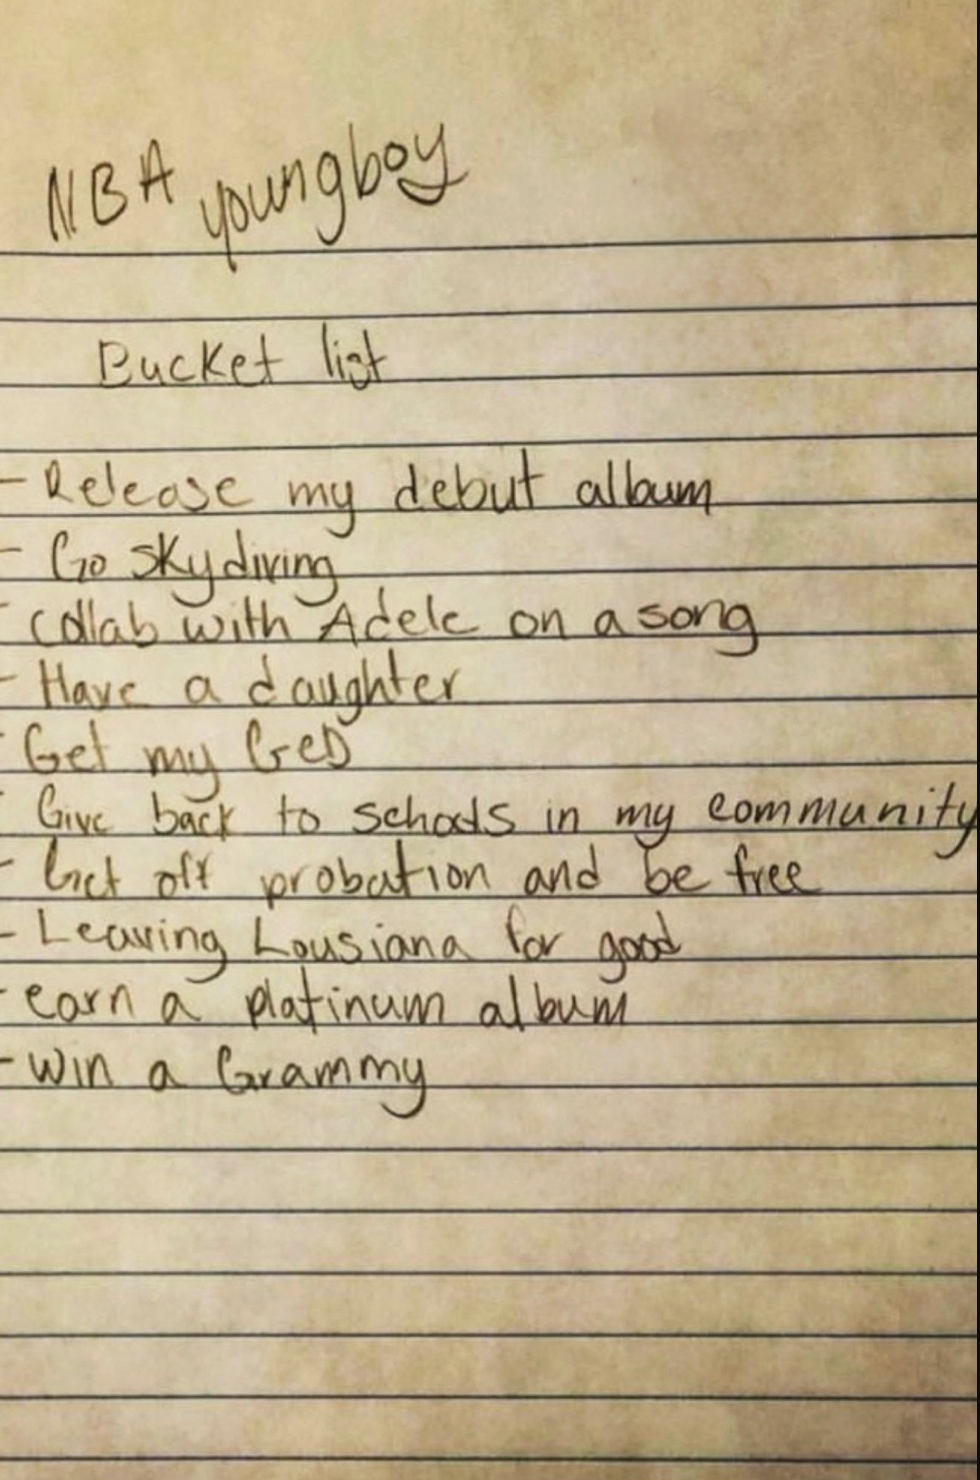 NBA youngboy
Bucket list
- Release my debut album
- Go skydiving
- collab with Adele on a song
- Have a daughter
- Get my GeD
- Give back to schools in my community
- Get off probation and be free
- Leaving Lousiana for good
- earn a platinum album
- win a Grammy